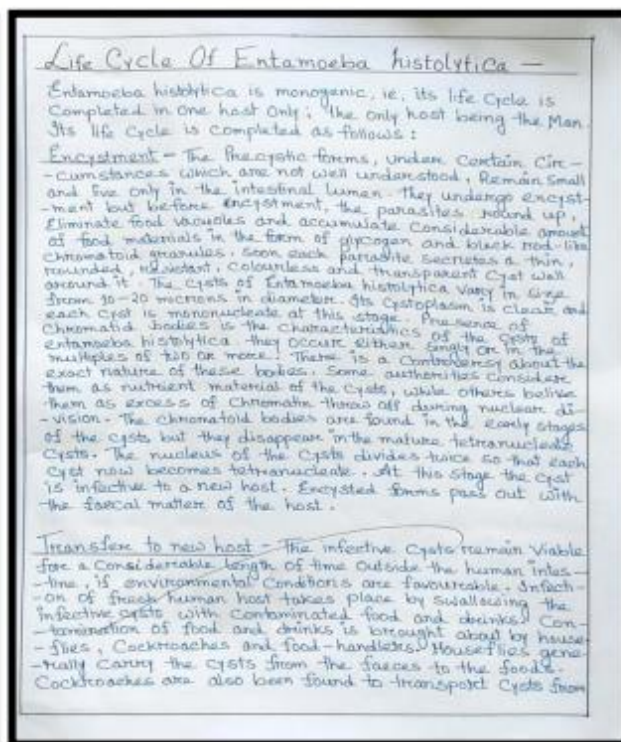 Life Cycle Of Entamoeba histolytica —
Entamoeba histolytica is monogenic, ie, its life Cycle is
Completed in One host Only; the only host being the Man.
Its life Cycle is completed as follows :
Encystment - The Precystic forms, under Certain Cir-
-cumstances which are not well understood, Remain Small
and live only in the intestinal lumen. they undergo encyst-
-ment but before encystment, the parasites round up,
Eliminate food vacuoles and accumulate Considerable amount
of food materials in the form of glycogen and black rod-like
Chromatoid granules. Soon each parasite secretes a thin,
rounded, resistant, Colourless and transparent Cyst wall
around it. The Cysts of Entamoeba histolytica vary in size
from 10-20 microns in diameter. Its Cystoplasm is clear and
each Cyst is mononucleate at this stage. Presence of
Chromatid bodies is the Characteristics of the Cysts of
entamoeba histolytica they occur either singly or in the
multiples of two or more. There is a Controversy about the
exact nature of these bodies. Some authorities Considere
them as nutrient material of the Cysts, while others belive
them as excess of Chromatin throw off during nuclear di-
-vision. The chromatoid bodies are found in the early stages
of the cysts but they disappear in the mature tetranucleate
Cysts. The nucleus of the Cysts divides twice so that each
Cyst now becomes tetranucleate. At this stage the Cyst
is infective to a new host. Encysted forms pass out with
the faecal matter of the host.
Transfere to new host - The infective Cysts remain Viable
fore a Considerable length of time Outside the human intes-
-tine, if environmental Conditions are favourable. Infecti-
-on of fresh human host takes place by swallowing the
infective cysts with Contaminated food and drinks. Con-
-tamination of food and drinks is brought about by house-
-flies, Cockroaches and food-handlers. Houseflies gene-
-rally Carry the cysts from the faeces to the foods.
Cockroaches are also been found to transport Cysts from